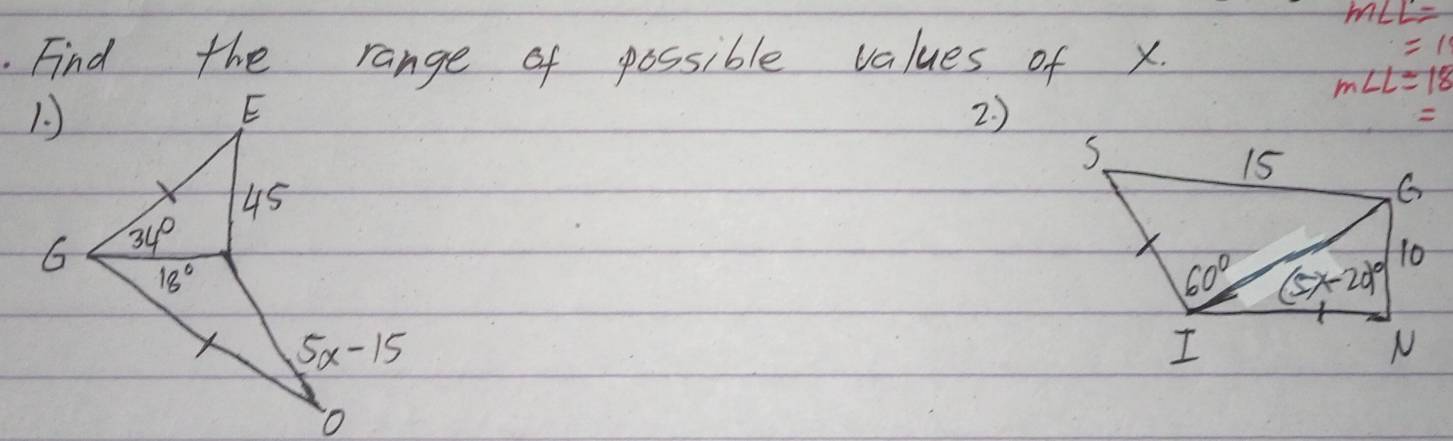 mLL=
. Find the range of possible values of x.
= 1
mLL=18
=
1.) 2.)
E
S 15 G
45
G 34° 10
18° 60° (5x-20)°
I N
5x-15
O